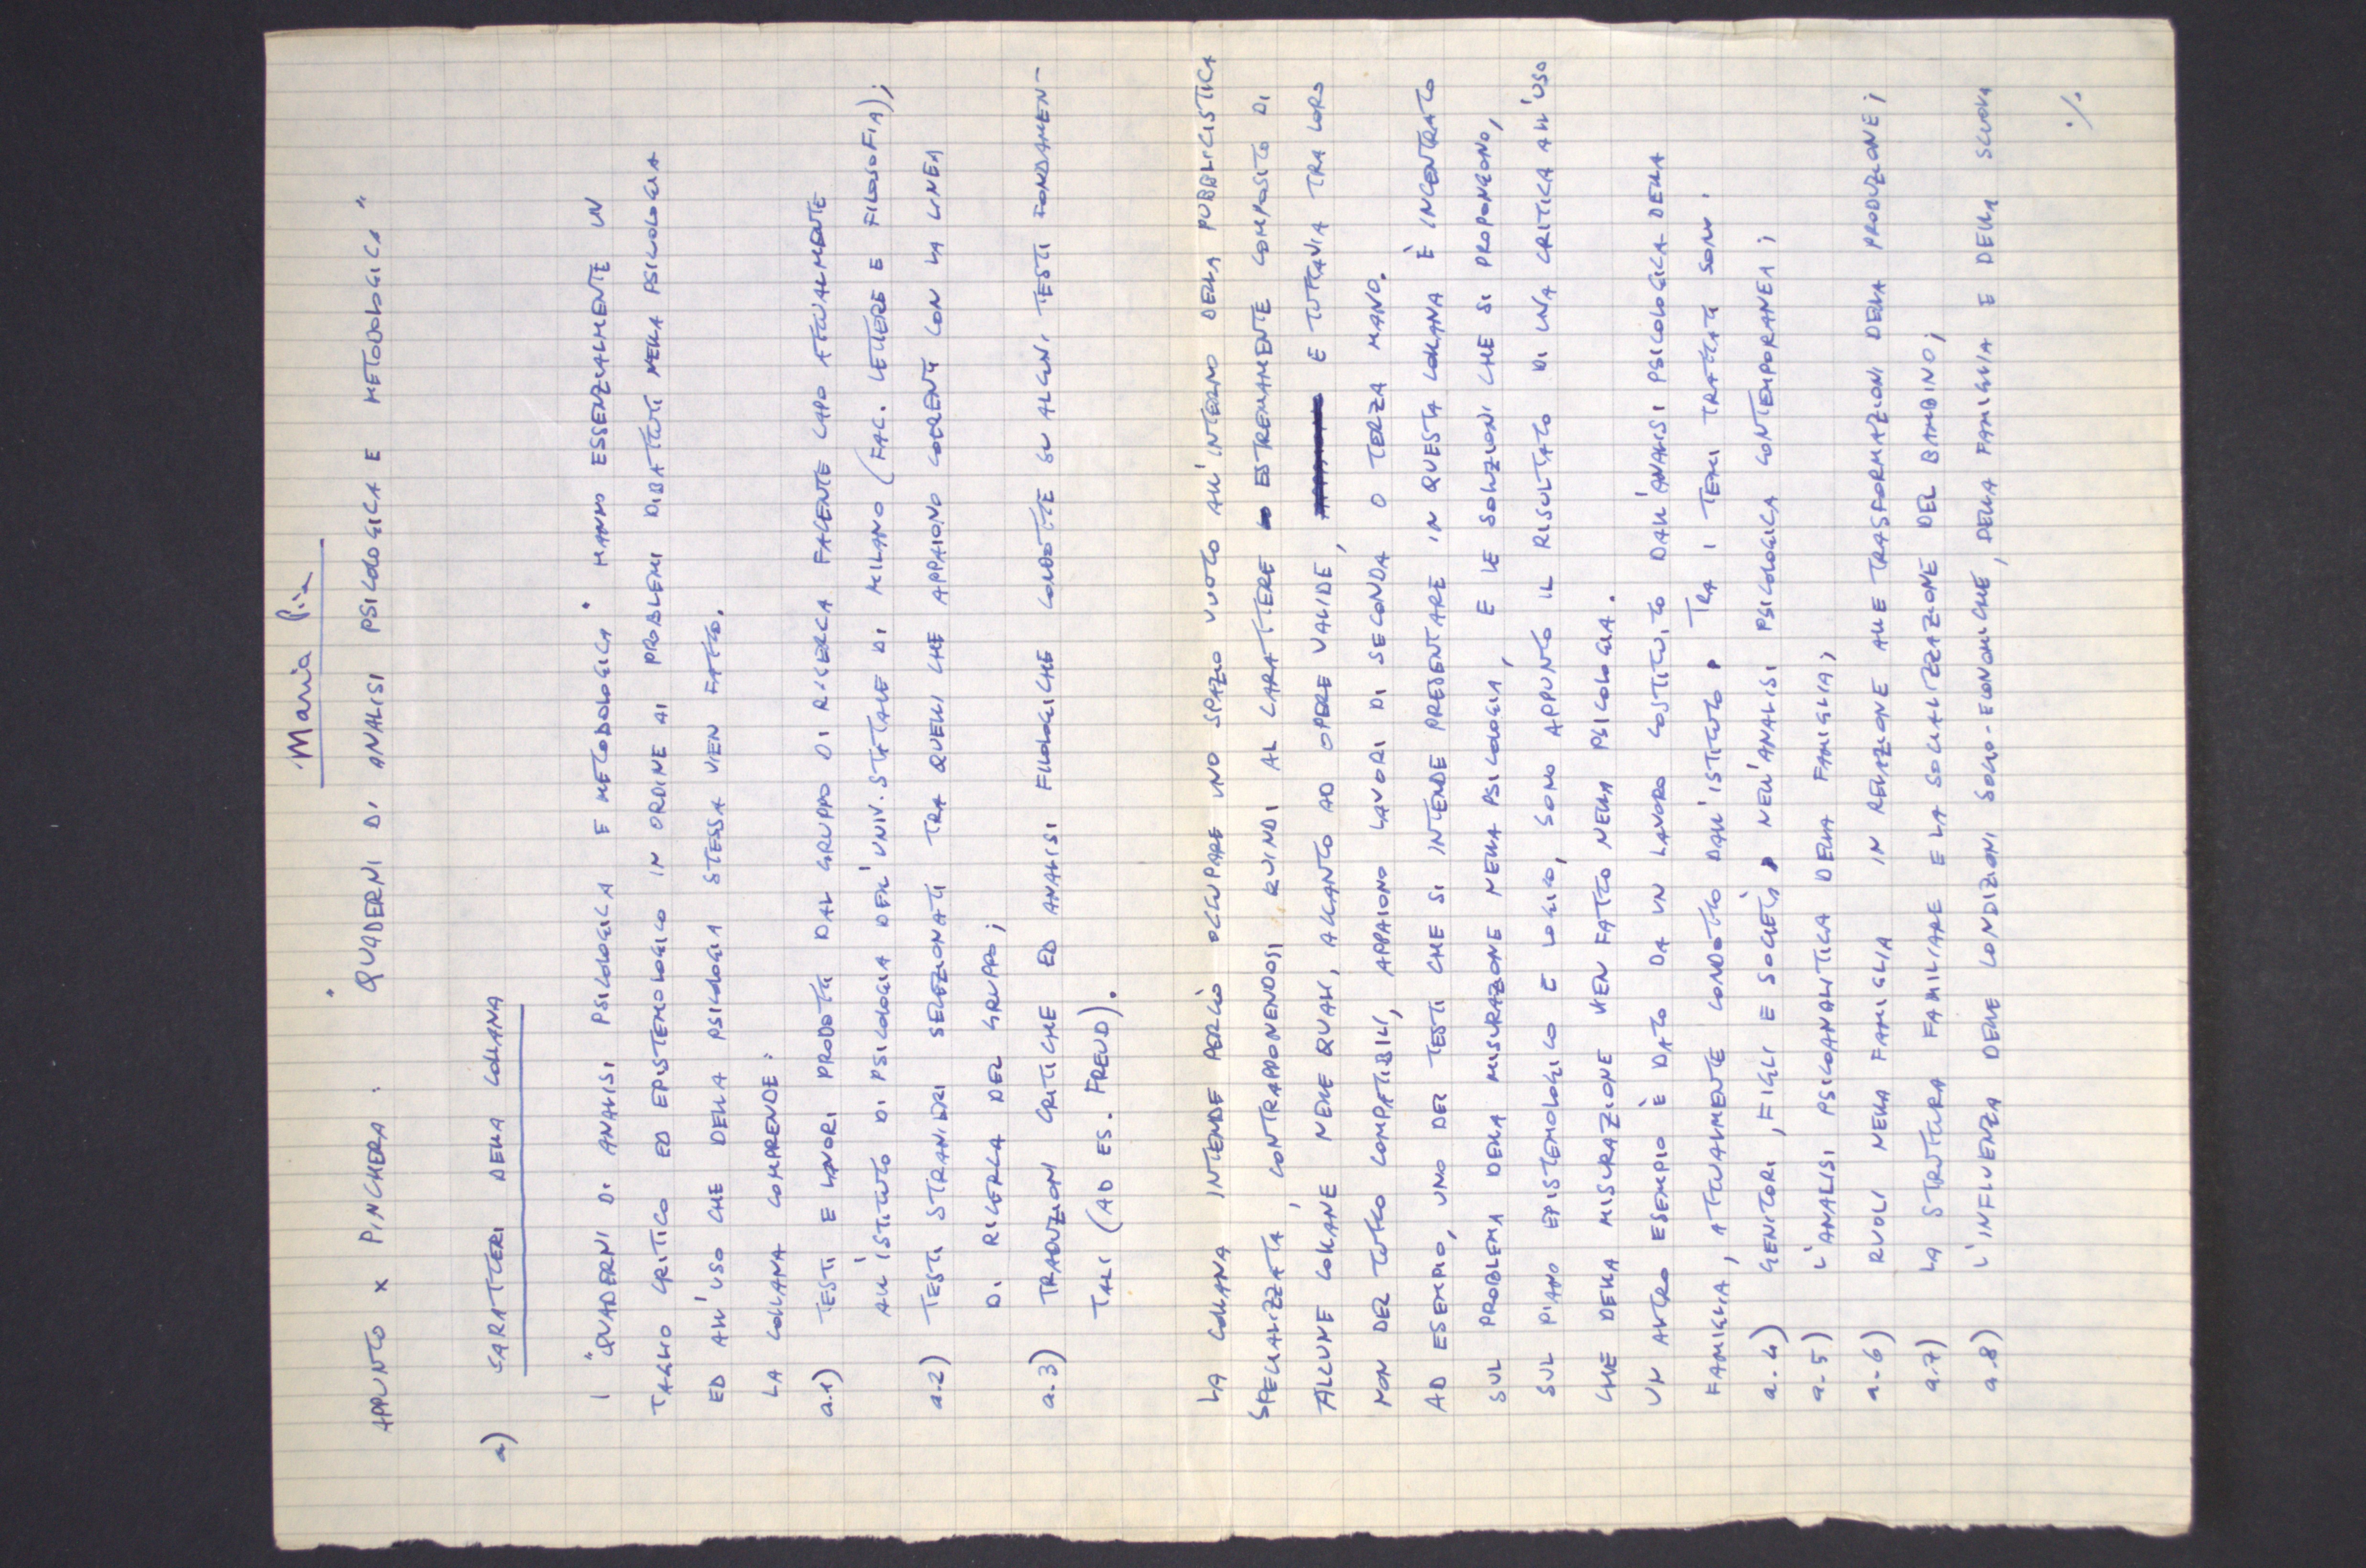 Maria Pia
APPUNTO X PINCHERA: "QUADERNI DI ANALISI PSICOLOGICA E METODOLOGICA"
a) CARATTERI DELLA COLLANA
I "QUADERNI DI ANALISI PSICOLOGICA E METODOLOGICA" HANNO ESSENZIALMENTE UN
TAGLIO CRITICO ED EPISTEMOLOGICO IN ORDINE AI PROBLEMI DIBATTUTI NELLA PSICOLOGIA
ED ALL'USO CHE DELLA PSICOLOGIA STESSA VIEN FATTO.
LA COLLANA COMPRENDE:
a.1) TESTI E LAVORI PRODOTTI DAL GRUPPO DI RICERCA FACENTE CAPO ATTUALMENTE
ALL'ISTITUTO DI PSICOLOGIA DELL'UNIV. STATALE DI MILANO (FAC. LETTERE E FILOSOFIA);
a.2) TESTI STRANIERI SELEZIONATI TRA QUELLI CHE APPAIONO COERENTI CON LA LINEA
DI RICERCA DEL GRUPPO;
a.3) TRADUZIONI CRITICHE ED ANALISI FILOLOGICHE CONDOTTE SU ALCUNI TESTI FONDAMEN-
TALI (AD ES. FREUD).
LA COLLANA INTENDE PERCIÒ OCCUPARE UNO SPAZIO VUOTO ALL'INTERNO DELLA PUBBLICISTICA
SPECIALIZZATA, CONTRAPPONENDOSI QUINDI AL CARATTERE ESTREMAMENTE COMPOSITO DI
ALCUNE COLLANE NELLE QUALI, ACCANTO AD OPERE VALIDE, E TUTTAVIA TRA LORO
NON DEL TUTTO COMPATIBILI, APPAIONO LAVORI DI SECONDA O TERZA MANO.
AD ESEMPIO, UNO DEI TESTI CHE SI INTENDE PRESENTARE IN QUESTA COLLANA È INCENTRATO
SUL PROBLEMA DELLA MISURAZIONE NELLA PSICOLOGIA, E LE SOLUZIONI CHE SI PROPONGONO,
SUL PIANO EPISTEMOLOGICO E LOGICO, SONO APPUNTO IL RISULTATO DI UNA CRITICA ALL'USO
CHE DELLA MISURAZIONE VIEN FATTO NELLA PSICOLOGIA.
UN ALTRO ESEMPIO È DATO DA UN LAVORO COSTITUITO DALL'ANALISI PSICOLOGICA DELLA
FAMIGLIA, ATTUALMENTE CONDOTTO DALL'ISTITUTO. TRA I TEMI TRATTATI SONO:
a.4) GENITORI, FIGLI E SOCIETÀ NELL'ANALISI PSICOLOGICA CONTEMPORANEA;
a.5) L'ANALISI PSICOANALITICA DELLA FAMIGLIA;
a.6) RUOLI NELLA FAMIGLIA IN RELAZIONE ALLE TRASFORMAZIONI DELLA PRODUZIONE;
a.7) LA STRUTTURA FAMILIARE E LA SOCIALIZZAZIONE DEL BAMBINO;
a.8) L'INFLUENZA DELLE CONDIZIONI SOCIO-ECONOMICHE, DELLA FAMIGLIA E DELLA SCUOLA
./.